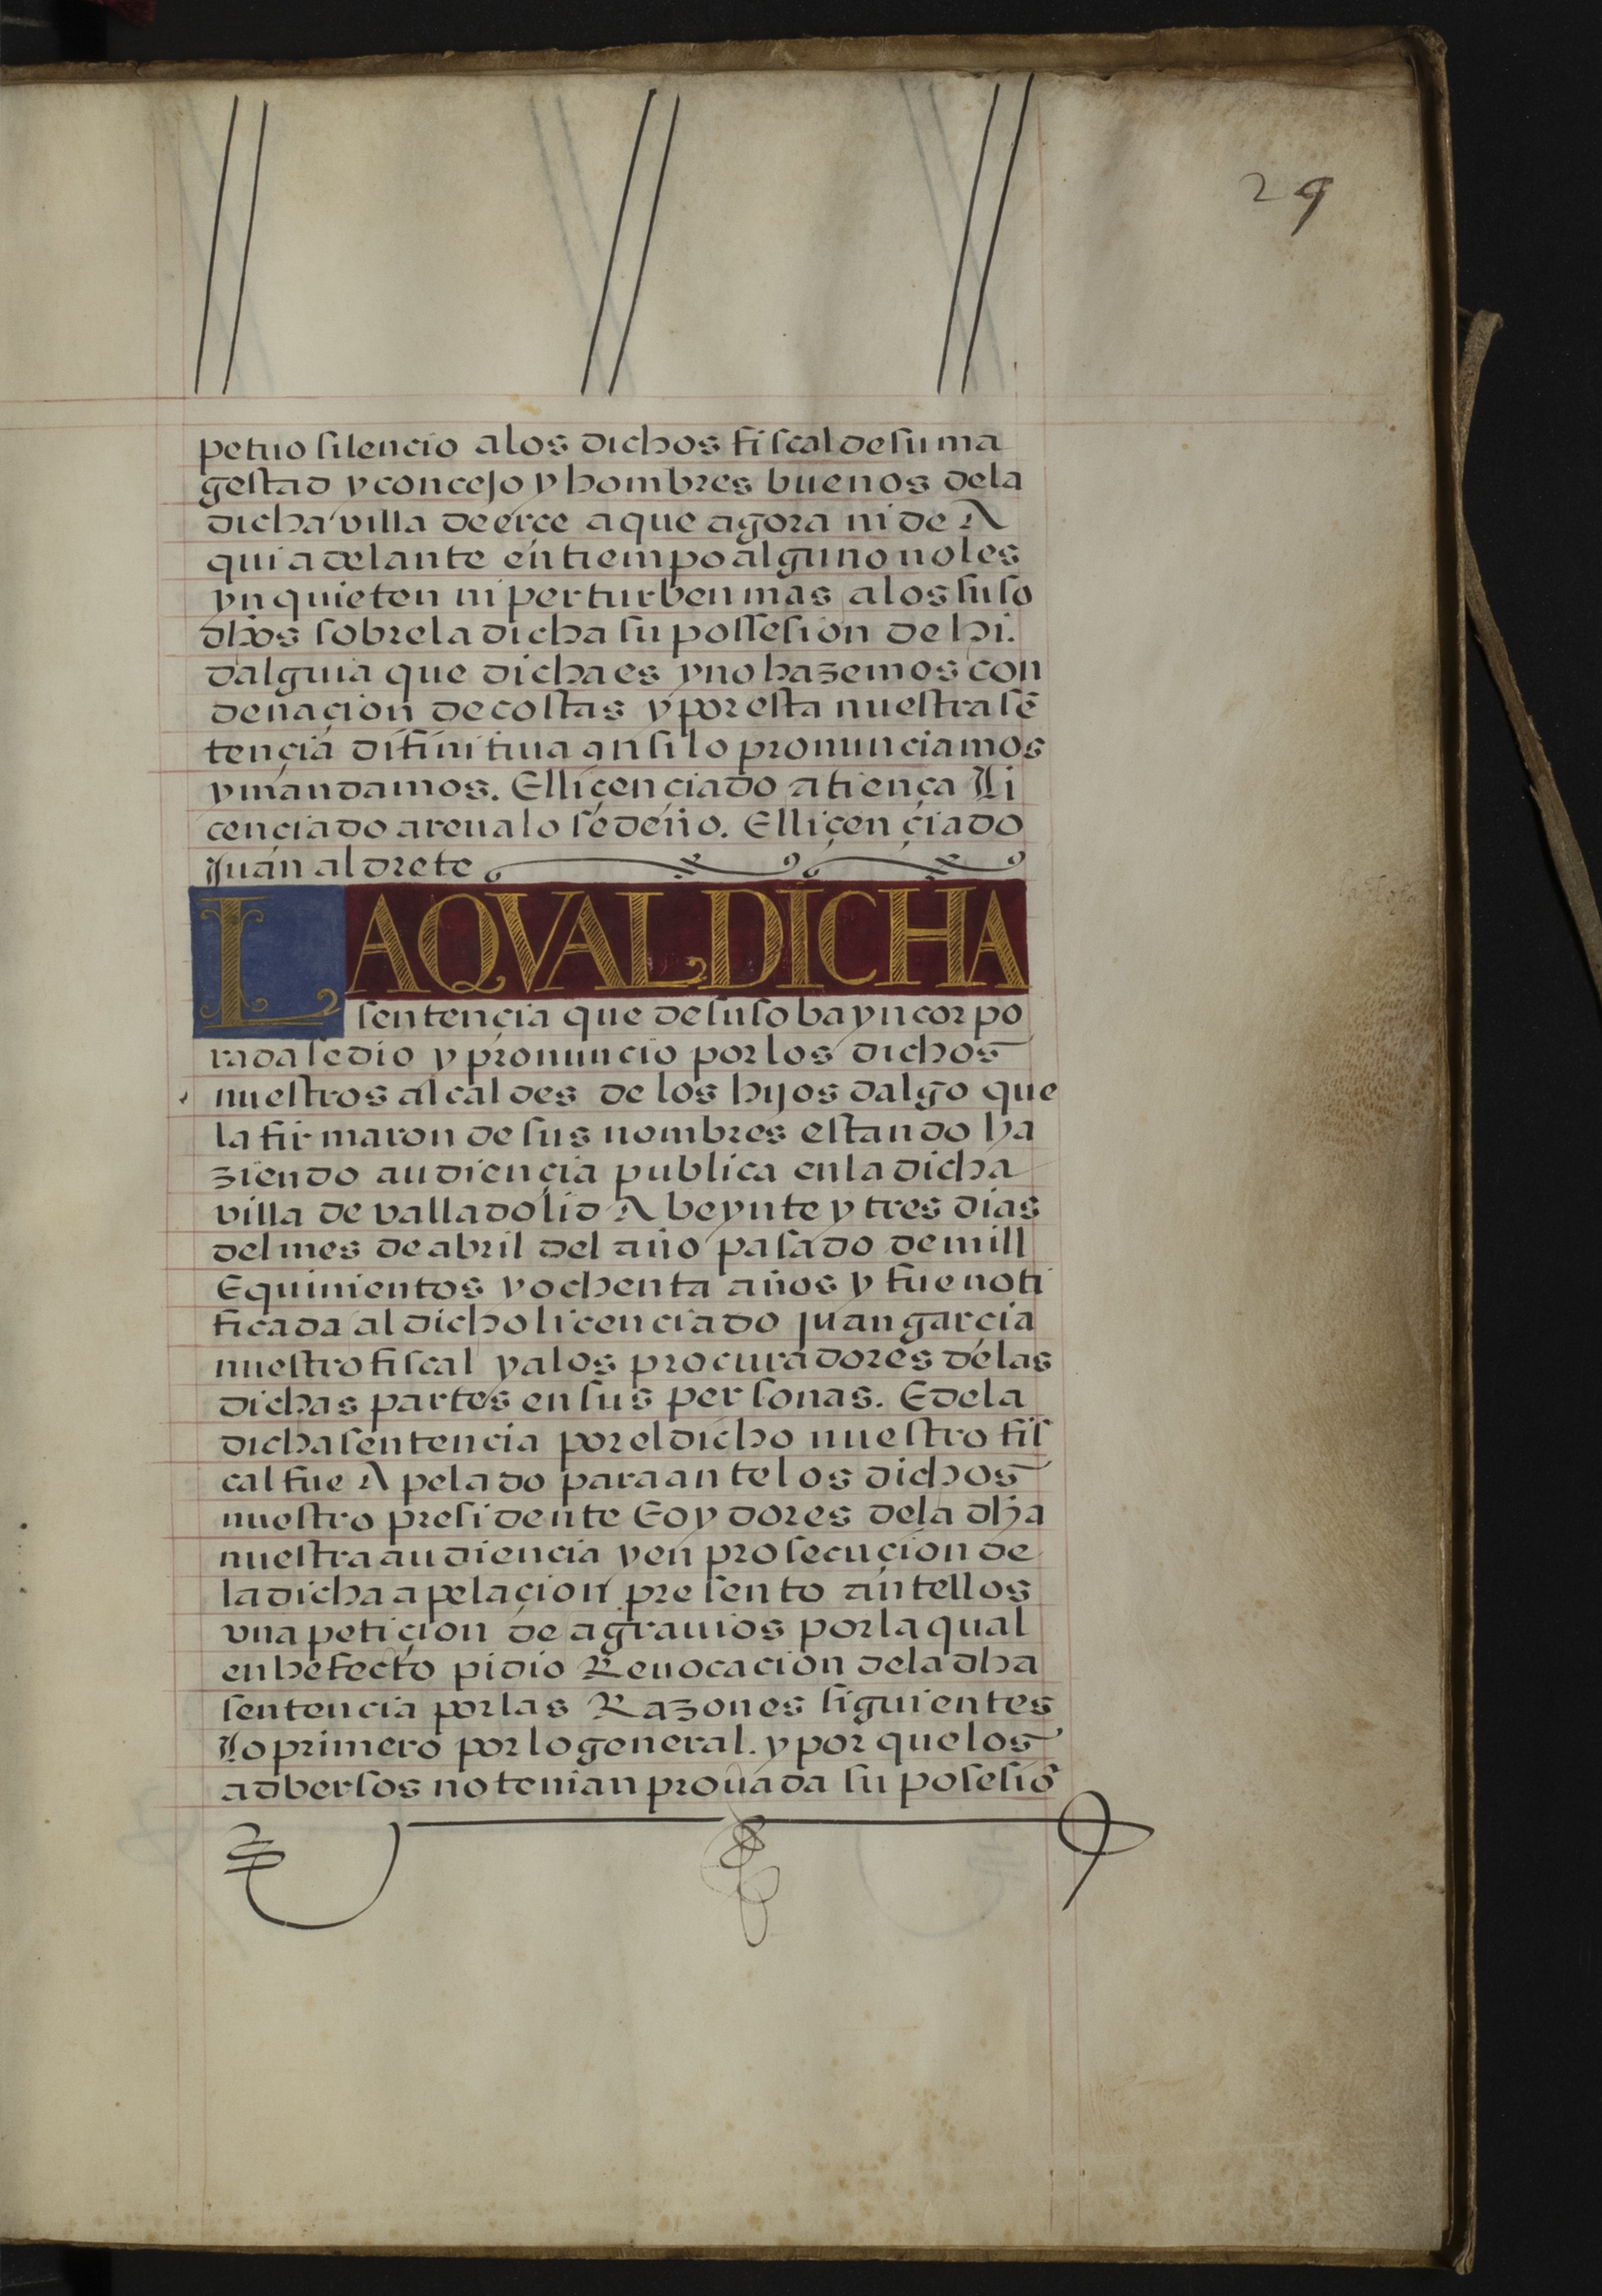 29
petuo silencio a los dichos fiscal de su ma
gestad y concejo y hombres buenos de la
dicha villa de erçe a que agora ni de A
qui adelante en tiempo alguno no les
ynquieten ni perturben mas a los suso
dhos sobre la dicha su possesion de hi.
dalguia que dicha es y no hazemos con
denaçion de costas y por esta nuestra sē
tençia difinitiua ansi lo pronunciamos
y mandamos. El liçençiado atiença Li
cençiado areualo sedeño. El liçençiado
Juan aldrete
LA QVAL DICHA
sentençia que de suso ba yncorpo
rada se dio y pronuncio por los dichos
nuestros alcaldes de los hijos dalgo que
la firmaron de sus nombres estando ha
ziendo audiençia publica en la dicha
villa de valladolid A beynte y tres dias
del mes de abril del año pasado de mill
E quinientos y ochenta años y fue noti
ficada al dicho licenciado juan garçia
nuestro fiscal y a los procuradores de las
dichas partes en sus personas. E de la
dicha sentencia por el dicho nuestro fis
cal fue Apelado para ante los dichos
nuestro presidente E oydores de la dha
nuestra audiencia y en prosecuçion de
la dicha apelaçion presento antellos
vna petiçion de agrauios por la qual
en hefecto pidio Reuocacion de la dha
sentencia por las Razones siguientes
Lo primero por lo general. y por que los
adbersos no tenian prouada su posesiō